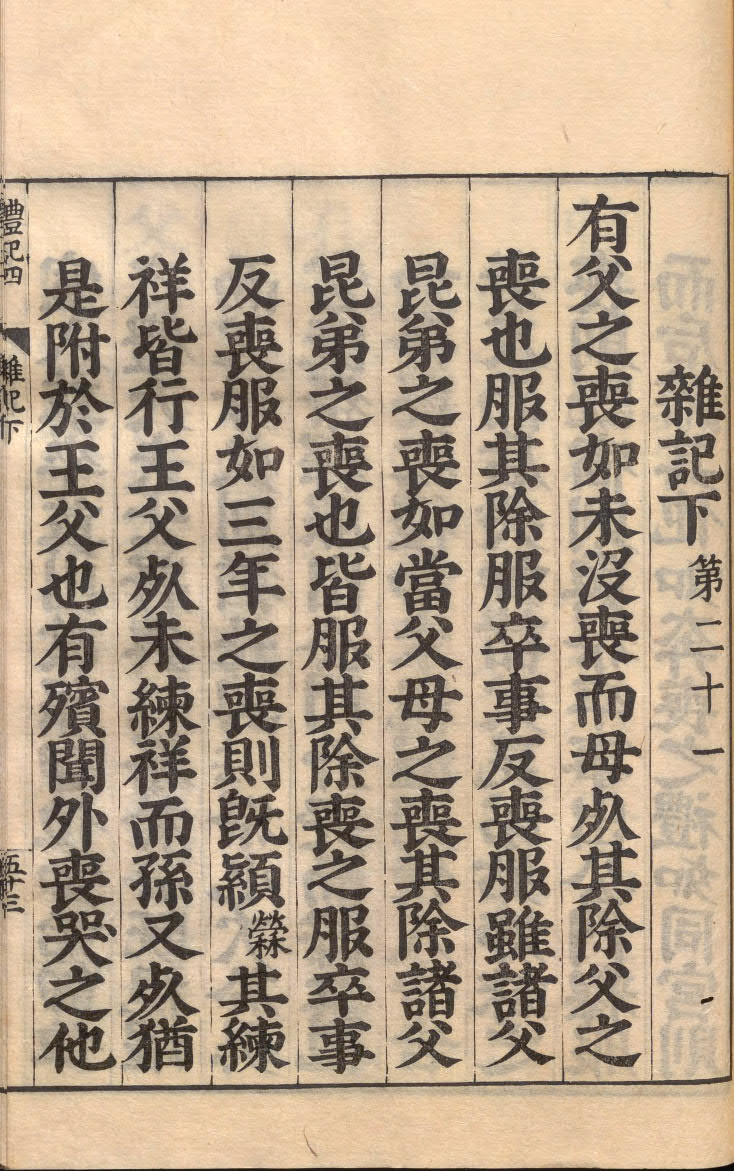 雜記下第二十一
有父之喪如未沒喪而母死其除父之
喪也服其除服卒事反喪服雖諸父
昆弟之喪如當父母之喪其除諸父
昆弟之喪也皆服其除喪之服卒事
反喪服如三年之喪則旣顈䔛其練
祥皆行王父死未練祥而孫又死猶
是附於王父也有殯聞外喪哭之他
禮記四 雜記下 五十三